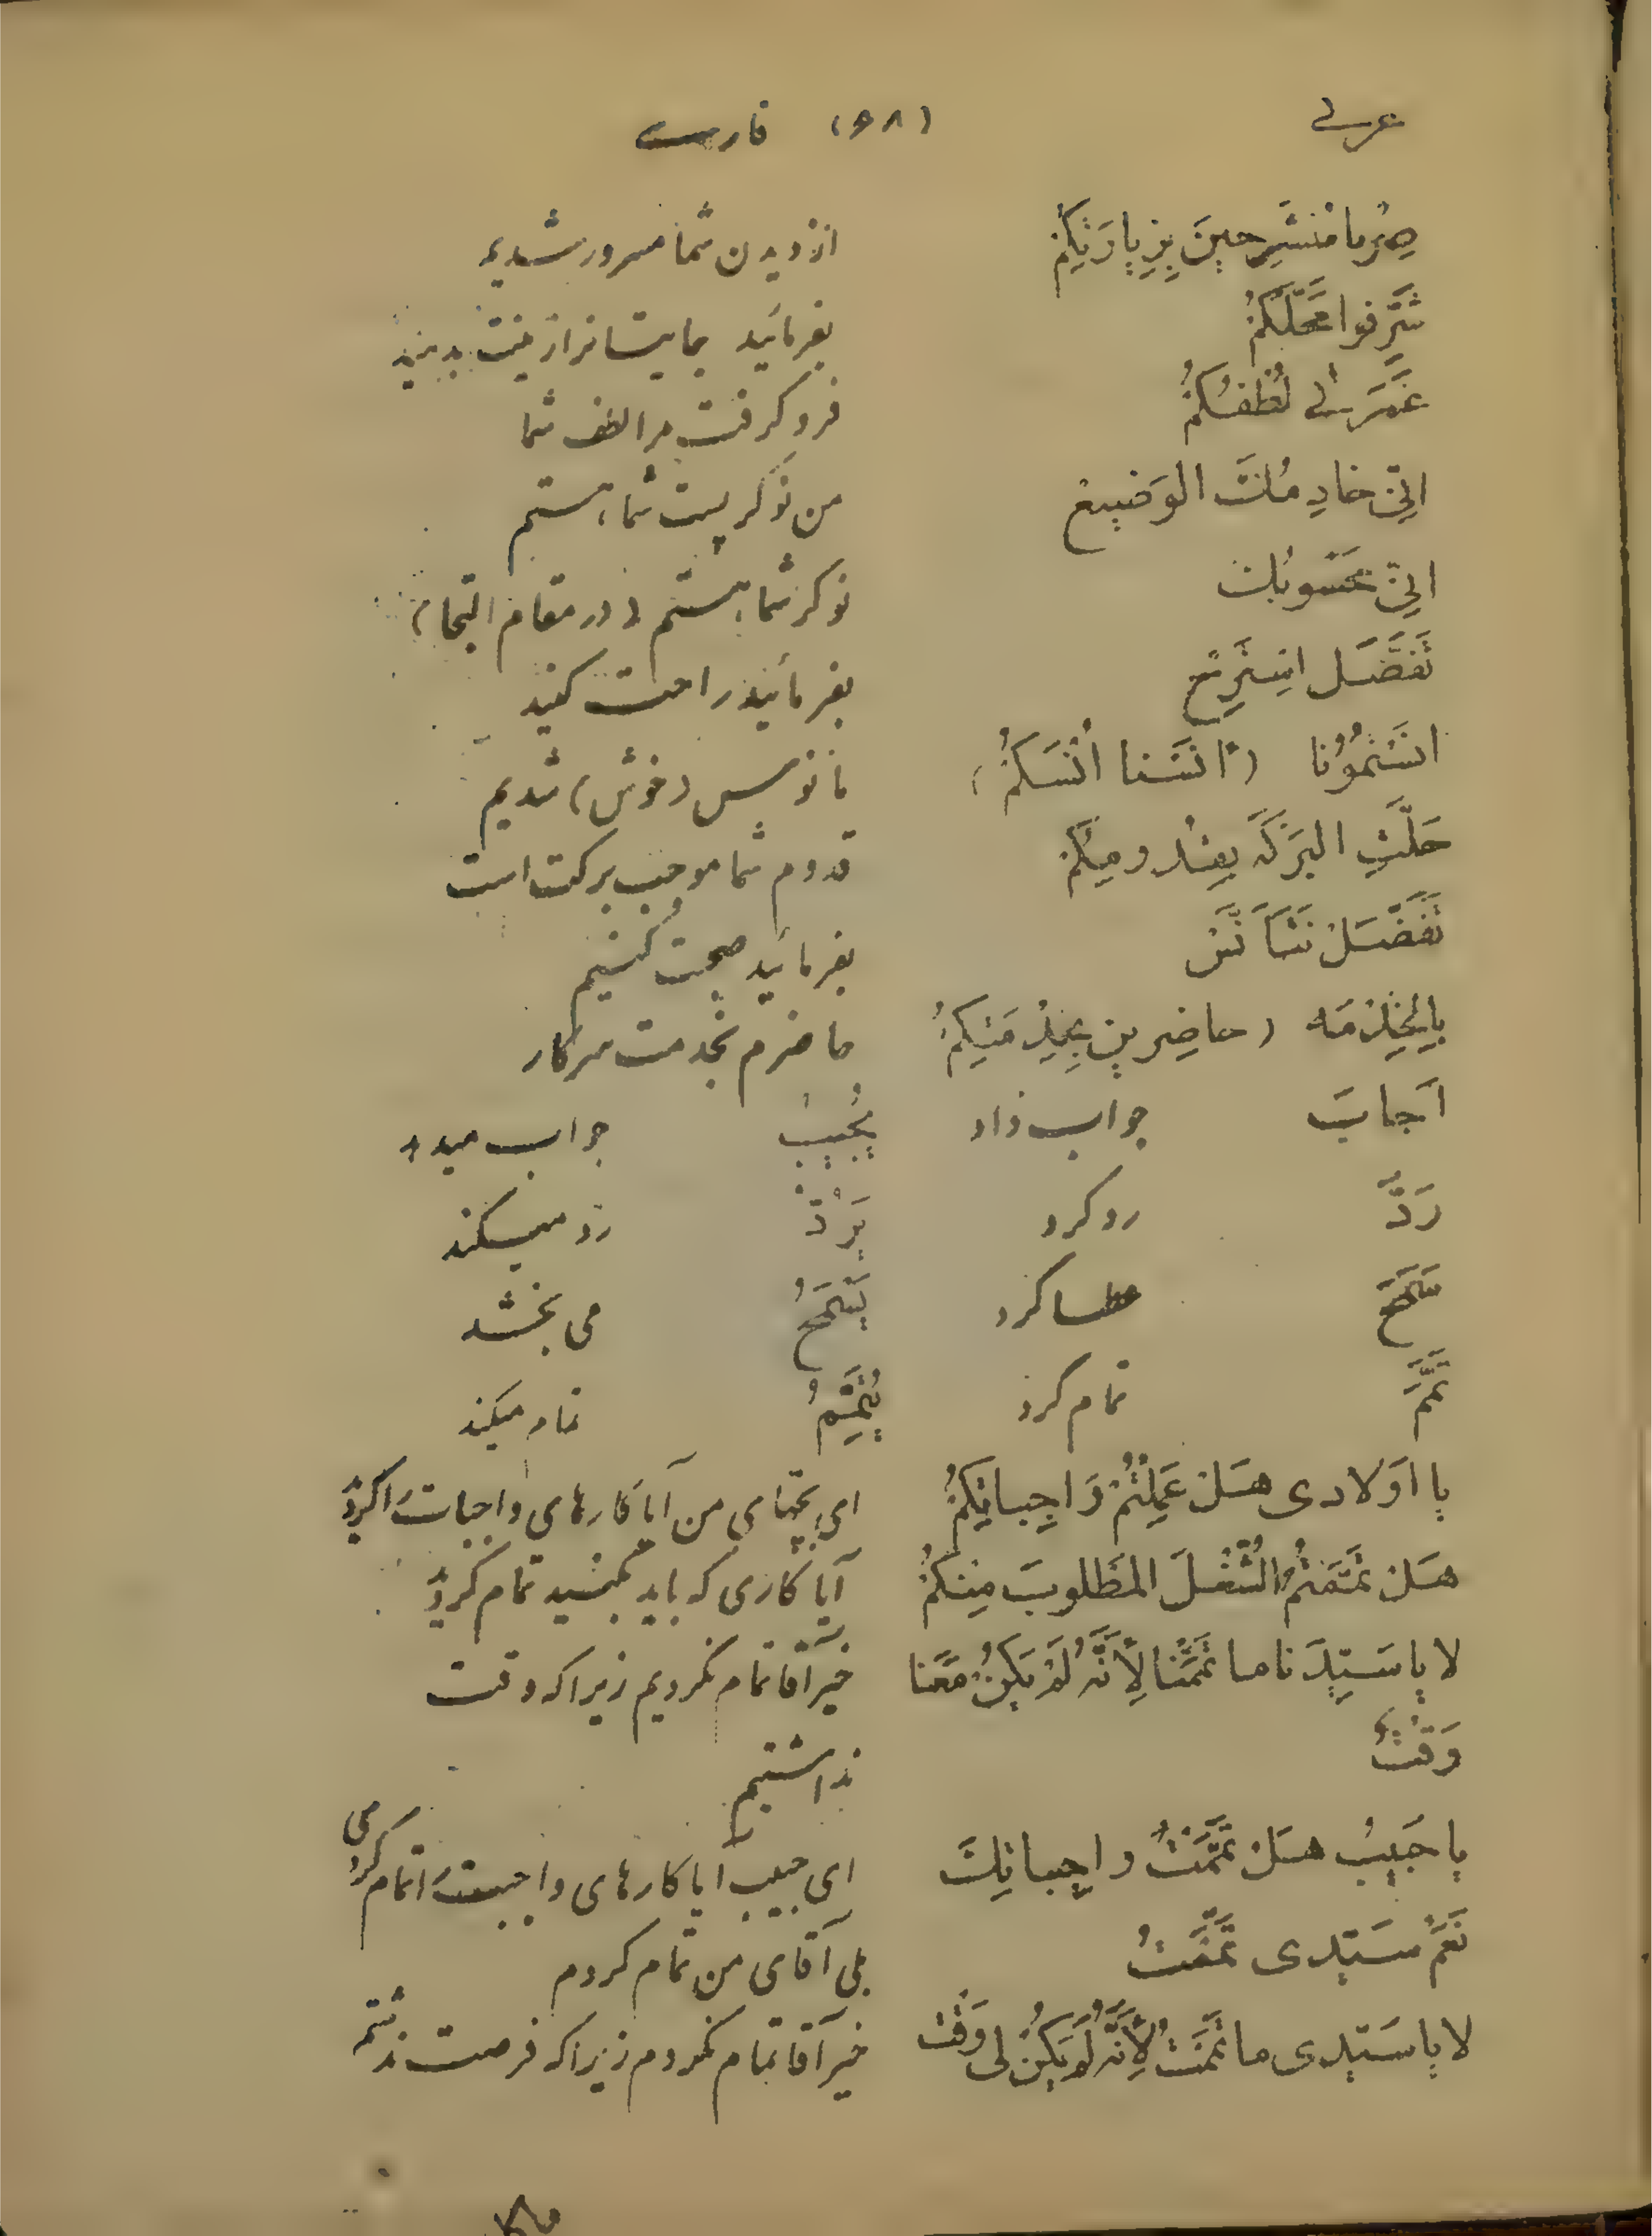 عربی (۶۸) فارسی
صِرْنا مُنْشَرِحینَ بِزِیارَتِکُمْ از دیدن شما مسرور شدیم
شَرِّفوا مَحَلَّکُمْ بفرمائید بجایتانرا زینت بدهید
غَمَرَنی لُطْفُکُمْ فرو گرفت مرا لطف شما
انّی خادِمُكَ الوَضیعْ من نوکر پست شما هستم
انّی مَحْسوبُكَ نوکر شما هستم (در مقام التجا)
تَفَضَّلْ اسْتَرِحْ بفرمائید راحت کنید
انَسْتُمُونا (آنَسَنا اُنْسَکُمْ) مأنوس (خوش) شدیم
حَلَّتِ البَرَکَه بِقُدومِکُمْ قدوم شما موجب برکت است
تَفَضَّلْ نَتَآنَسْ بفرمائید صحبت کنیم
بِالْخِدْمَه (حاضِرین بِخِدْمَتِکُمْ حاضرم بخدمت سرکار
اَجابَ جواب داد یُجیبُ جواب میدهد
رَدَّ رد کرد یَرُدُّ رد میکند
مَنَحَ عطا کرد یَمْنَحُ می بخشد
تَمَّمَ تمام کرد یُتَمِّمُ تمام میکند
یا اَولادی هَلْ عَمِلْتُمْ وَاجِباتِکُمْ ای بچّهای من آیا کارهای واجبات را کردید
هَلْ تَمَّمْتُمُ الشُّغْلَ المَطْلوبَ مِنْکُمْ آیا کاری که باید بکنید تمام کردید
لا یا سَیِّدَنا ما تَمَّمْنا لِأَنَّهُ لَمْ یَکُنْ مَعَنا خیر آقا تمام نکردیم زیرا که وقت
وَقْتٌ نداشتیم
یا حَبیبُ هَلْ تَمَّمْتَ واجِباتِكَ ای حبیب آیا کارهای واجبت را تمام کردی
نَعَمْ سَیِّدی تَمَّمْتُ بلی آقای من تمام کردم
لا یا سَیِّدی ما تَمَّمْتُ لِأَنَّهُ لَمْ یَکُنْ لی وَقْت خیر آقا تمام نکردم زیرا که فرصت نداشتم